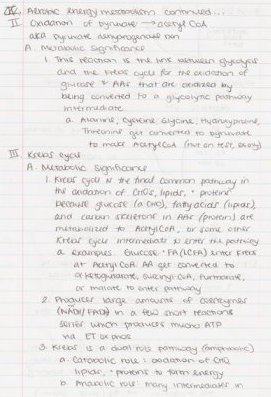 IX. Aerobic energy metabolism continued...
II Oxidation of pyruvate → acetyl CoA
aka pyruvate dehydrogenase rxn
A. Metabolic Significance
1. This reaction is the link between glycolysis
and the Krebs cycle for the oxidation of
glucose + AAs that are oxidized by
being converted to a glycolytic pathway
intermediate
a. Alanine, Cysteine, Glycine, Hydroxyproline,
Threonine get converted to pyruvate
to make Acetyl CoA (not on test, exactly)
III. Krebs cycle
A. Metabolic Significance
1. Krebs cycle is the final common pathway in
the oxidation of CHOs, lipids, + proteins
because glucose (a CHO), fatty acids (lipids),
and carbon skeletons in AAs (protein) are
metabolized to AcetylCoA, or some other
Krebs cycle intermediate to enter the pathway
a. examples: Glucose + FA (LCFA) enter Krebs
at Acetyl CoA. AA get converted to
α-ketoglutarate, succinyl-CoA, fumarate,
or malate to enter pathway
2. Produces large amounts of coenzymes
(NADH/FADH) in a few short reactions
series which produces mucho ATP
via ET ox phos
3. Krebs is a dual role pathway (amphibolic)
a. Catabolic role: oxidation of CHO,
lipids, + proteins to form energy
b. Anabolic role: many intermediates in